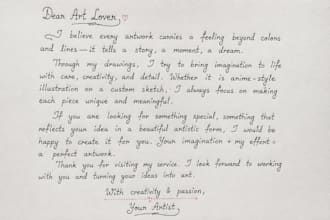 Dear Art Lover, ♡
I believe every artwork carries a feeling beyond colors
and lines—it tells a story, a moment, a dream.
Through my drawings, I try to bring imagination to life
with care, creativity, and detail. Whether it is anime-style
illustration on a custom sketch, I always focus on making
each piece unique and meaningful.
If you are looking for something special, something that
reflects your idea in a beautiful artistic form, I would be
happy to create it for you. Your imagination + my effort =
a perfect artwork.
Thank you for visiting my service. I look forward to working
with you and turning your ideas into art.
With creativity & passion,
Your Artist